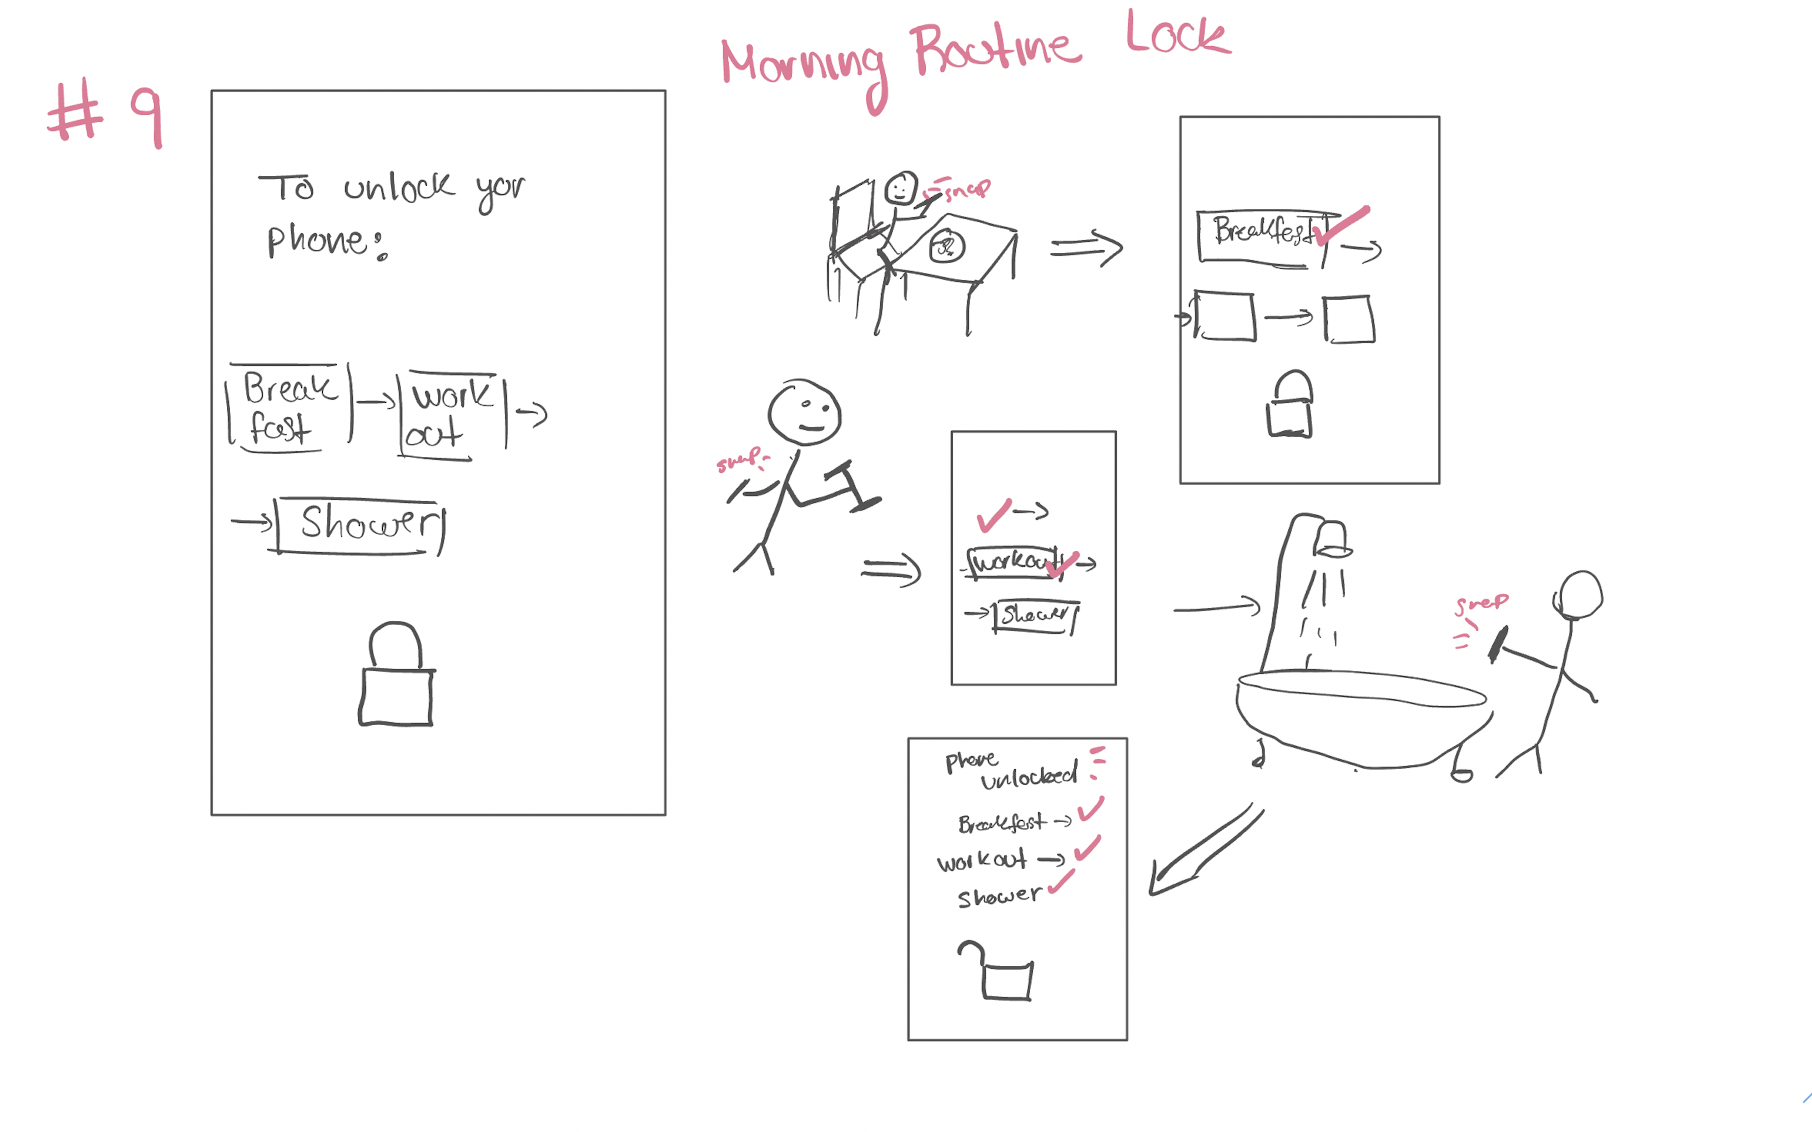 Morning Routine Lock
#9
To unlock yor
phone:
Break
fast
work
out
Shower
snap
Breakfest
snap
workout
Shower
snap
phone
unlocked
Breakfest
workout
shower